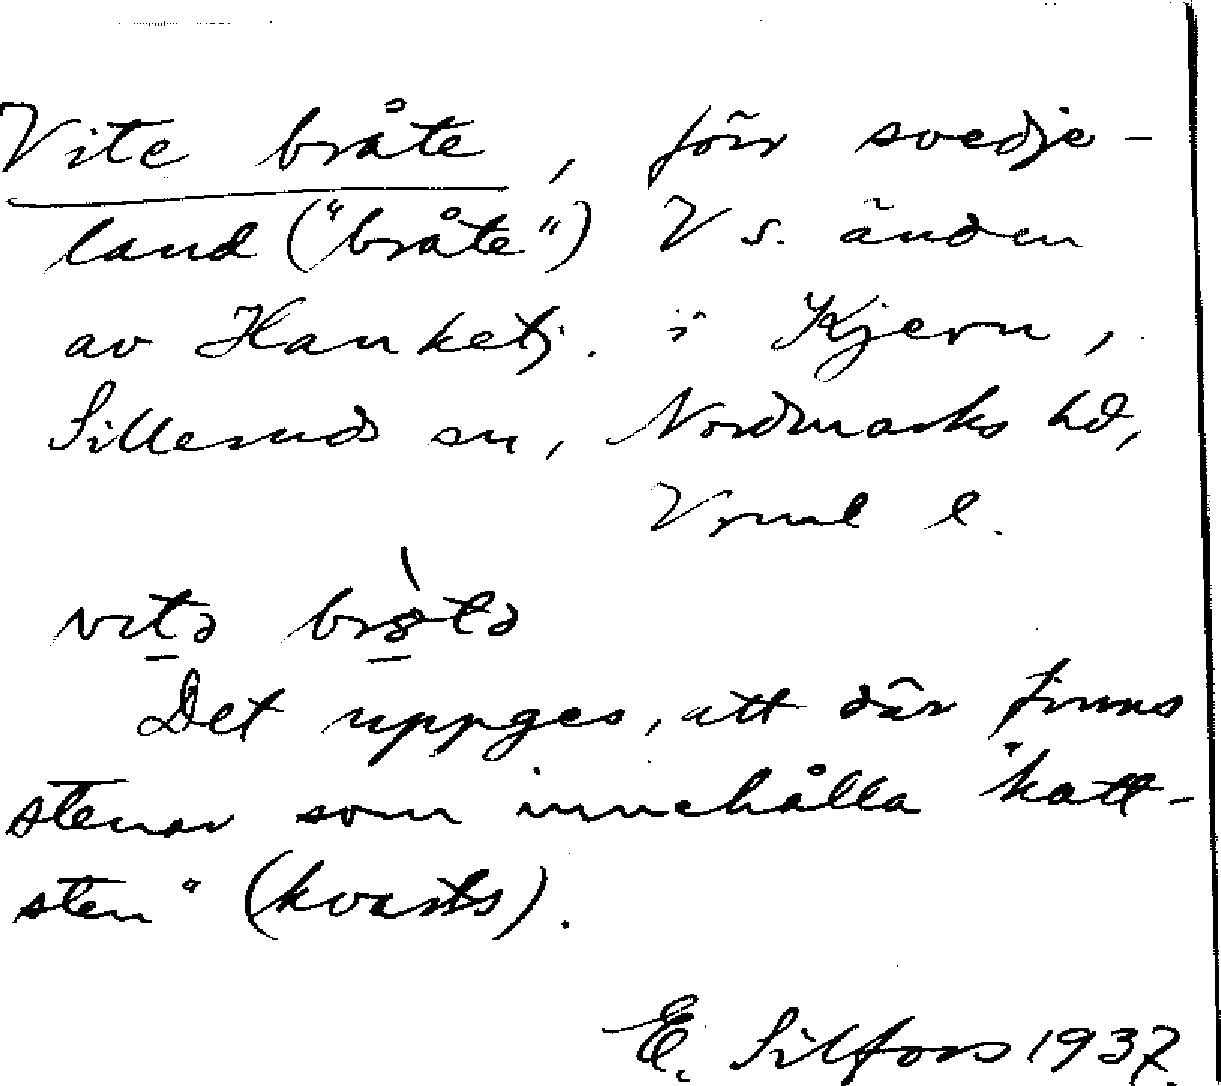 Vite bråte, förr svedje-
land ("bråte") V s. änden
av Hanketj. i Kjern,
Silleruds sn, Nordmarks hd,
Vrml l.
vitə brɔ̀tə
Det uppges, att där finns
stenar som innehålla "katt-
sten" (kvarts).
E. Silfors 1937.